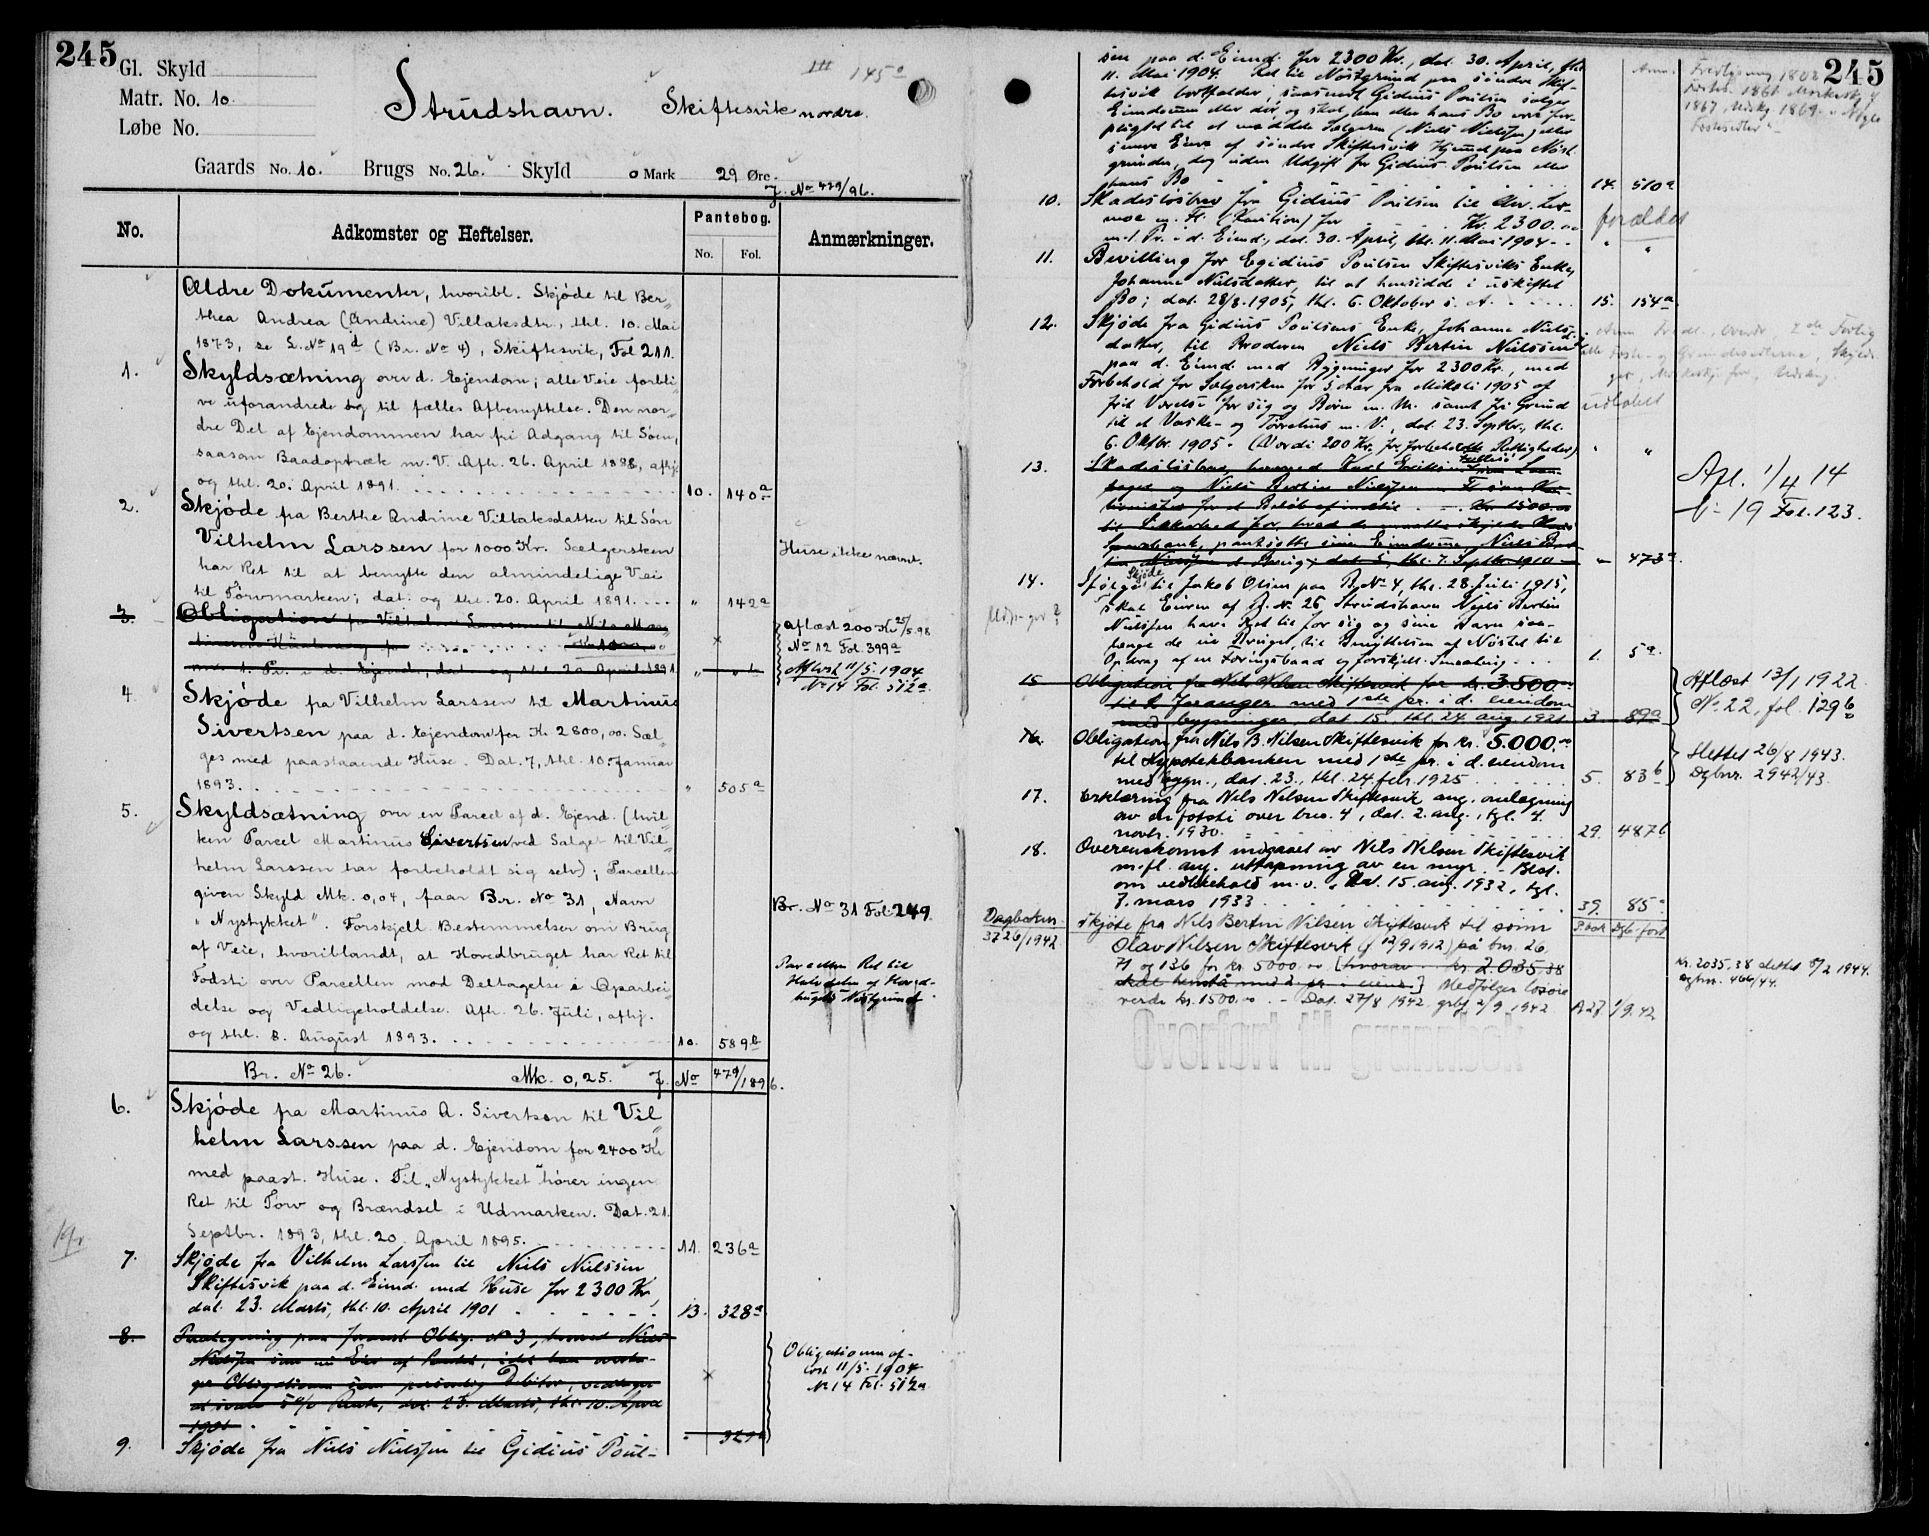 245
Gl. Skyld
Matr. No. 10.
Løbe No.
Strudshavn. Skiftesvik nordre.
III 145a
Gaards No. 10. Brugs No. 26. Skyld 0 Mark 29 Øre.
J. No 479/96.
No. Adkomster og Heftelser. Pantebog. Anmærkninger.
No. Fol.
Ældre Dokumenter, hvoribl. Skjøde til Ber-
thea Andrea (Andrine) Villaksdtr., thl. 10. Mai
1873, se L. No 19d (Br. No 4), Skiftesvik, Fol 211.
1. Skyldsætning over d. Ejendom; alle Veie forbli-
ve uforandrede og til fælles Afbenyttelse. Den nor-
dre Del af Ejendommen har fri Adgang til Søen,
saasom Baadoptræk m.V. Afh. 26. April 1888, afhj.
og thl. 20. April 1891. 10. 140a
2. Skjøde fra Berthe Andrine Villaksdatter til Søn
Vilhelm Larssen for 1000 Kr. Sælgersken
Huse ikke nævnt.
har Ret til at benytte den almindelige Vei
til Torvmarken; dat. og thl. 20. April 1891. " 142a
3. Obligation fra Vilhelm Larssen til Nils Mar-
Aflæst 200 Kr 25/5.98
No 12 Fol. 399a
m. 1. Pr. i d. Ejend., dat. og thl. 20. April 1891
Aflæst 11/5. 1904
No 14 Fol. 512a.
4. Skjøde fra Vilhelm Larssen til Martinus
Sivertsen paa d. Ejendom for Kr 2800,00. Sæl-
ges med paastaaende Huse. Dat. 7, thl. 10. Januar
1893. " 505a
5. Skyldsætning over en Parcel af d. Ejend. (hvil-
ken Parcel Martinus Sivertsen ved Salget til Vil-
helm Larssen har forbeholdt sig selv); Parcellen
given Skyld Mk. 0,04, faar Br. No 31, Navn
Br. No 31 Fol. 249.
"Nystykket". Forskjell. Bestemmelser om Brug
af Veie, hvoriblandt, at Hovedbruget har Ret til
Fodsti over Parcellen mod Deltagelse i Oparbei-
Parcellen Ret til
Halvdelen af Hoved-
brugets Nøstgrund.
delse og Vedligeholdelse. Afh. 26. Juli, afhj.
og thl. 8. August 1893. 10. 589b
Br. No 26. Mk. 0,25. J. No 479/1896.
6. Skjøde fra Martinus A. Sivertsen til Vil-
helm Larssen paa d. Ejendom for 2400 Kr
med paast. Huse. Til "Nystykket" hører ingen
Ret til Torv og Brændsel i Udmarken. Dat. 21.
Septbr. 1893, thl. 20. April 1895. 11. 236a
7. Skjøde fra Vilhelm Larssen til Niels Nielssen
Skiftesvik paa d. Eiend. med Huse for 2300 Kr,
dat. 23. Marts, thl. 10. April 1901 13. 328a
8. Paategning paa foranst. Oblig. No 3, hvorved Niels
Nielssen som nu Eier af Pantet, idet han overta-
ger Obligationen som personlig Debitor, vedtager
at svare 5% Rente, dat. 23. Marts, thl. 10. April
1901 " 329a
Obligationen af-
læst 11/5. 1904
No 14 Fol. 512a
9. Skjøde fra Niels Nielssen til Gidius Poul-
245
sen paa d. Eiend. for 2300 Kr., dat. 30. April, thl.
11. Mai 1904. Ret til Nøstgrund paa søndre Skif-
tesvik bortfalder, saasnart Gidius Poulsen sælger
Eiendommen eller dør, og skal han eller hans Bo være for-
pligtet til at meddele Sælgeren (Niels Nielssen) eller
senere Eiere af søndre Skiftesvik Hjemmel paa Nøst-
grunden, dog uden Udgift for Gidius Poulsen eller
hans Bo 14. 510a
10. Skadesløsbrev fra Gidius Poulsen til
m. Fl. (Kaution) for Kr. 2300.00
m. 1. Pr. i d. Eiend., dat. 30. April, thl. 11. Mai 1904 " "
forældet
11. Bevilling for Egidius Poulsen Skiftesviks Enke,
Johanne Nielsdatter, til at hensidde i uskiftet
Bo; dat. 28/8. 1905, thl. 6. Oktober s. A. 15. 154a
12. Skjøde fra Gidius Poulsens Enke, Johanne Niels-
datter, til Broderen Niels Bertin Nielssen
paa d. Eiend. med Bygninger for 2300 Kr., med
Forbehold for Sælgersken for 5 Aar fra Mikeli 1905 af
frit Værelse for sig og Børn m. M. samt fri Grund
udløbet
til et Vaske- og Tørrehus m. V., dat. 23. Septbr., thl.
6. Oktbr. 1905. (Værdi 200 Kr. for forbeholdte Rettigheder) " "
13. Skadesløsbrev, hvorved
og Niels Bertin Nielssen
Kr. 1500.00
dat. 5, thl. 7. Septbr. 1910 " 473a
Afl. 1/4 14
b- 19 Fol. 123.
14. Ifølge Skjøde til Jakob Olsen paa B. No 4, thl. 28. Juli 1915,
skal Eieren af B. No 26 Strudshavn Niels Bertin
Nielssen have Ret til for sig og sine Barn saa-
længe de eie Bruget, til Benyttelsen af Nøstet til
Opdrag af en Føringsbaad og forskjell. 1. 5a.
15 Obligation fra Nils Nilsen Skiftesvik for kr. 3.500.-
til L. Joranger med 1ste pr. i d. eiendom
med bygninger, dat. 15. thl. 24. aug 1921 3. 89a
Aflæst 13/1 1922
No 22, fol. 129b
16. Obligation fra Nils B. Nilsen Skiftesvik for kr. 5.000.00
til Hypotekbanken med 1ste pr. i d. eiendom
med bygn., dat. 23., thl. 24. febr. 1925 5. 83b
Slettet 26/8 1943.
Dgbnr. 2942/43.
17. Erklæring fra Nils Nilsen Skiftesvik ang. omlægning
av en fotsti over brno. 4, dat. 2. aug., tgl. 4.
novbr. 1930. 29. 487b
18. Overenskomst inngaaet av Nils Nilsen Skiftesvik
m.fl. ang. uttapning av en myr. - Best.
om vedlikehold m.v., Dat. 15. aug. 1932, tgl.
7. mars 1933 39. 85a
Dagboknr. 3726/1942
Skjøte fra Nils Bertin Nilsen Skiftesvik til sønn
Olav Nilsen Skiftesvik (f 12/9 1912) på bnr. 26,
71 og 136 for kr. 5000.00 [hvorav kr 2.035.38
skal henstå med 2. pr. i eiend.] Medfølger løsøre
verdi kr. 1500.00. - Dat. 27/8 1942 grbf. 2/9 1942 A27 1/9.42
kr. 2035,38 slettet 8/2 1944.
Dgbnr. 466/44.
Overført til grunnbok